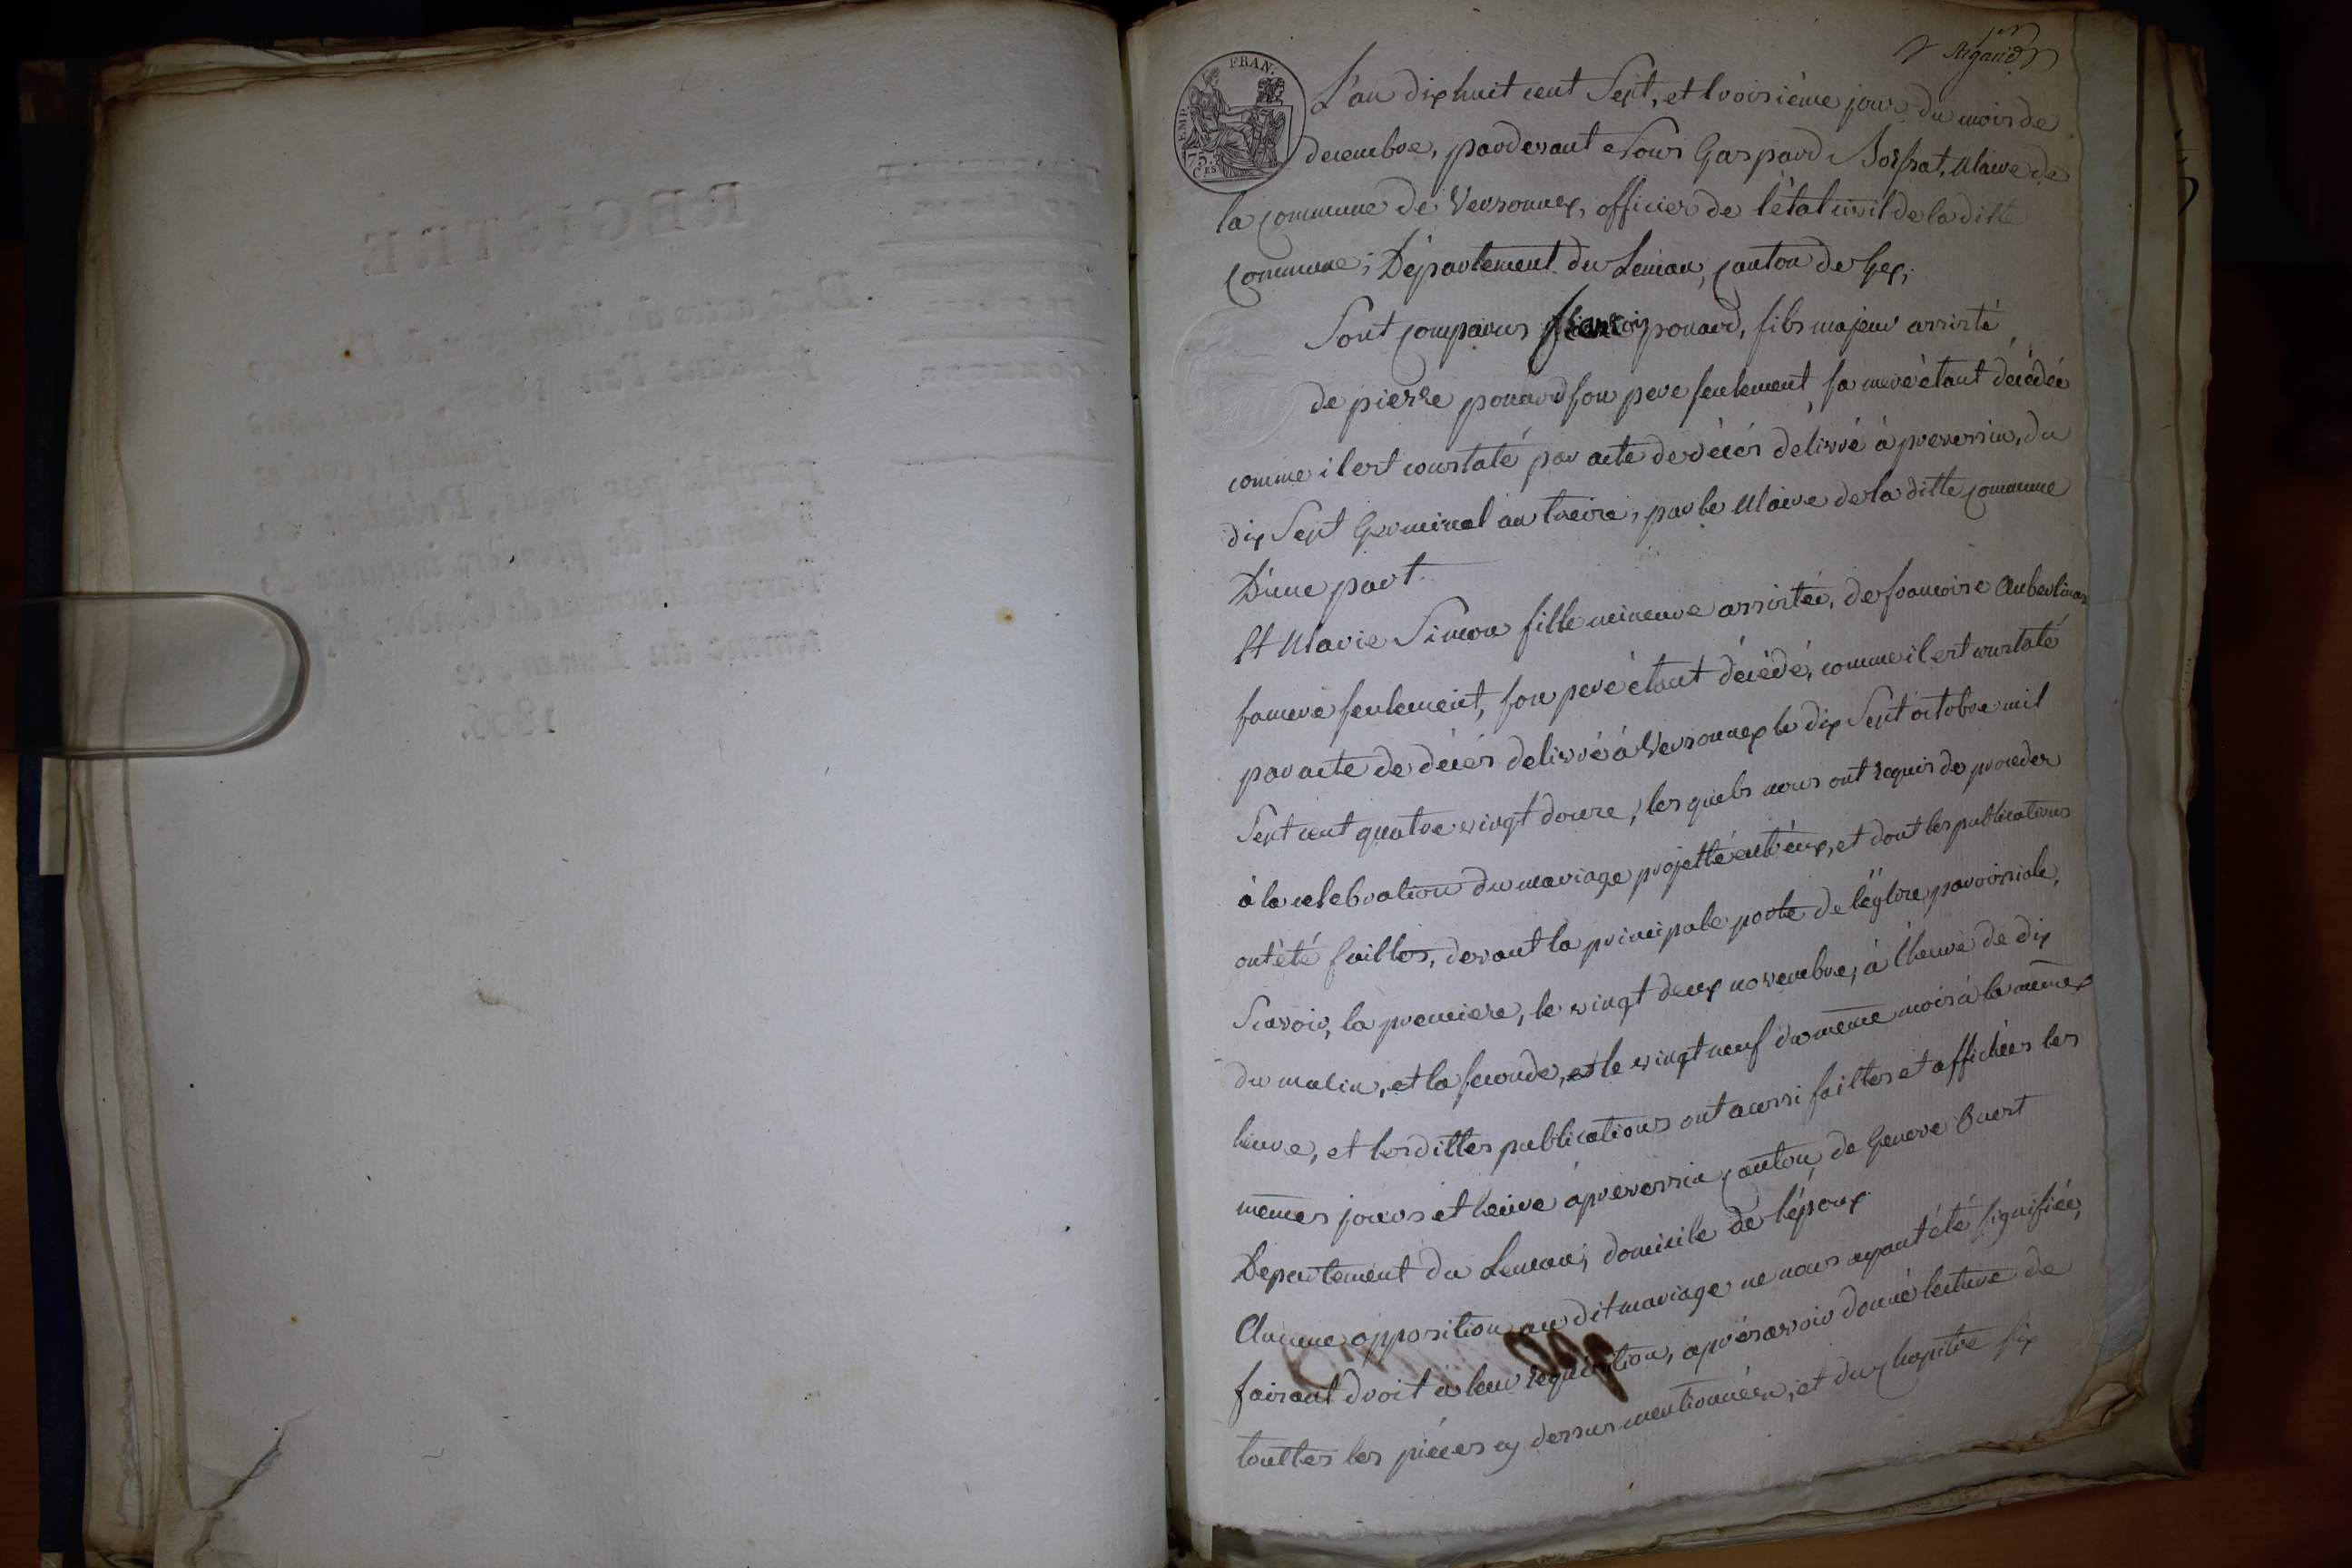 REGISTRE
1806.
Argand
FRAN.
EMP.
75.
CES
L'an dix huit cent Sept, et troisième jour du mois de
decembre, pardevant Nous Gaspard Maire de
la commune de Versonnex, officier de l'état civil de la ditte
commune; Département du Leman, canton de Gex;
Sont comparus francois ponard, fils majeur assisté
de pierre ponard son pere seulement, sa mere étant décédée
comme il est constaté par acte de décés delivré à preversin, du
dix Sept Germinal an treize, par le Maire de la ditte commune
D'une part.
Et Marie Simon fille mineure assistée, de francoise
sa mere seulement, son pere étant décédé, comme il est constaté
par acte de décés delivré à Versonnex le dix Sept octobre mil
Sept cent quatre vingt douze, les quels nous ont requis de proceder
à la celebration du mariage projetté entr'eux, et dont les publications
ont été faittes, devant la principale porte de l'église parroissiale,
Scavoir, la premiere, le vingt deux novembre, à l'heure de dix
du matin, et la seconde, et le vingt neuf du même mois à la même
heure, et les dittes publications ont aussi faittes et affichées les
mêmes jours et heure à preversin canton de Geneve Ouest
Departement du Leman, domicile de l'époux
Aucune opposition au dit mariage ne nous ayant été signifiée,
faisant droit à leur requisition, après avoir donné lecture de
touttes les piéces cy dessus mentionnées, et du chapitre six